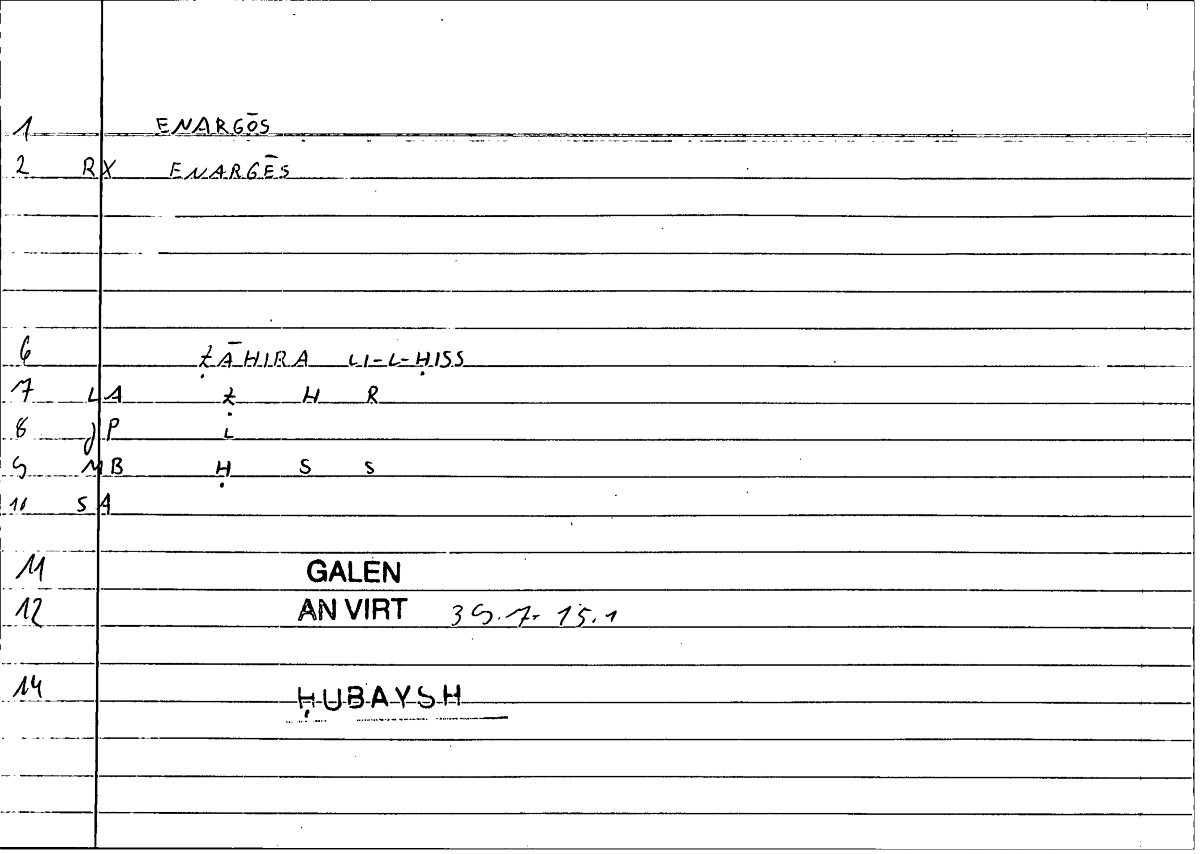 1 ENARGŌS
2 RX ENARGĒS
6 ẒĀHIRA LI-L-ḤISS
7 LA Ẓ H R
8 JP L
9 MB Ḥ S S
10 SA
11 GALEN
12 AN VIRT 39.7-15.1
14 ḤUBAYSH